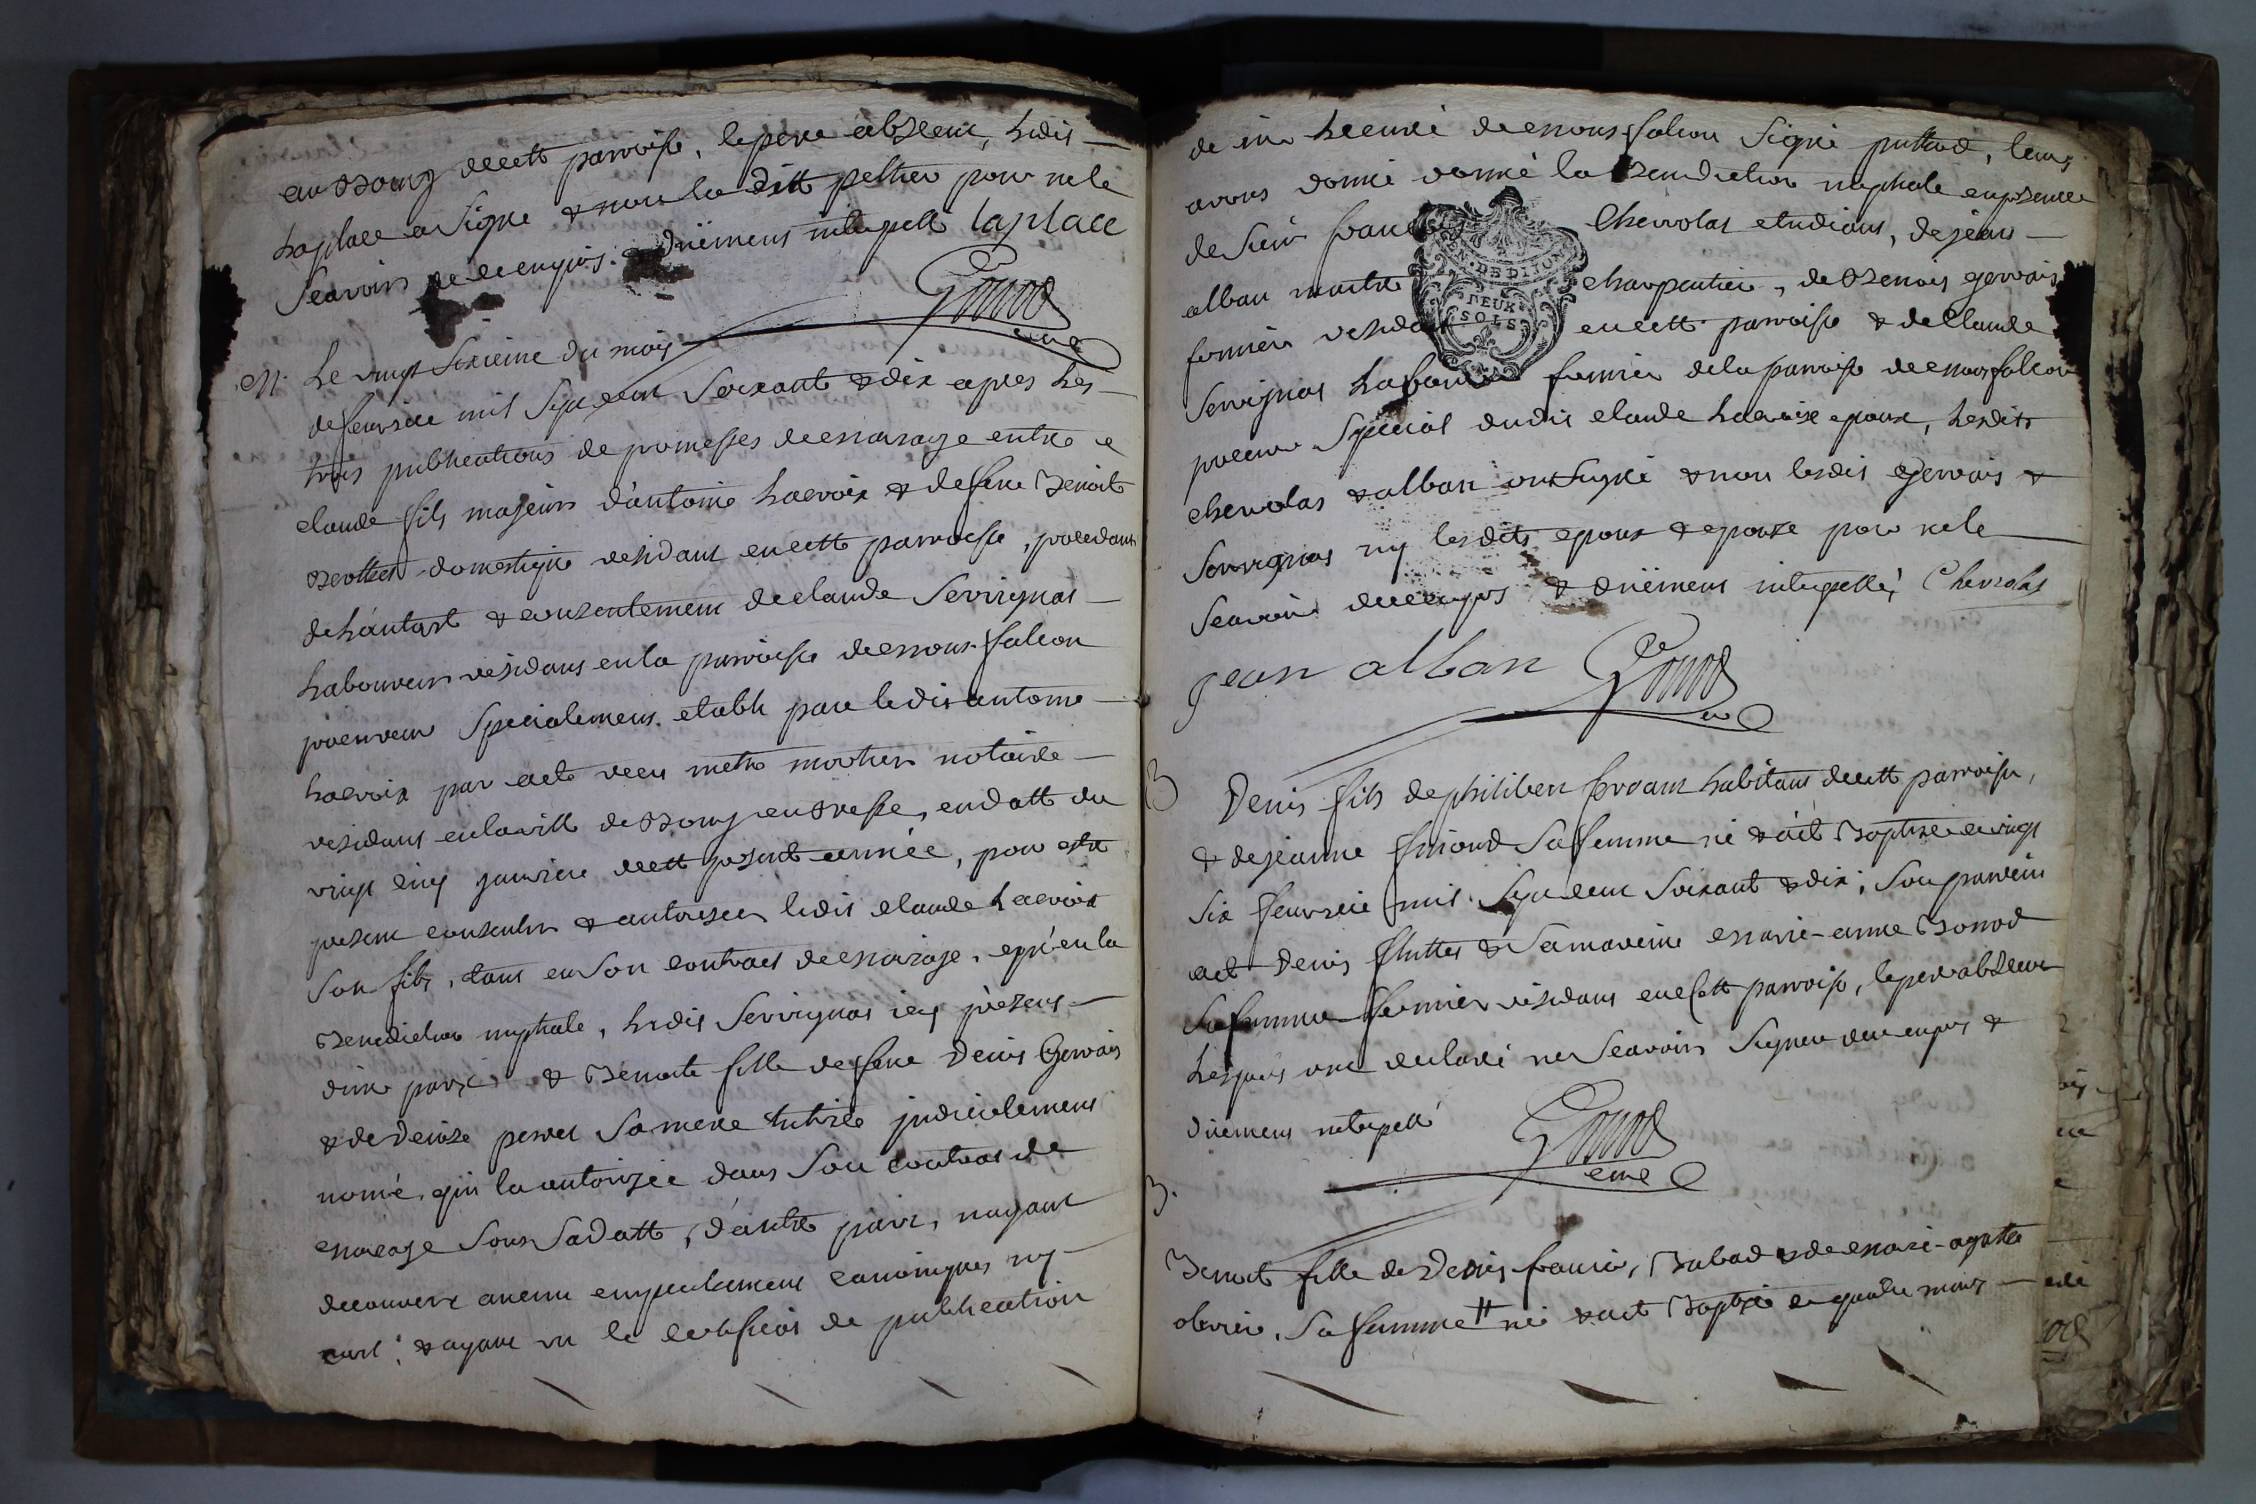 au Bourg decette parroisse, le pere absent, ledit
laplace a Signé & non la ditte peltier pour ne le
Scavoir de ce enquis. & Duëment interpellé laplace
Gonod
curé
M. Le vingt Sixieme Du mois
de fevrier mil Sept cent Soixante & dix apres les
trois publications de promesses de mariage entre
claude fils majeur d'antoine Lacroix & de feue Benoite
domestique residant en cette parroisse, procedant
de l'autorité & consentement de claude Servignat
Laboureur residant en la parroisse de montfalcon
procureur Specialement etabli par le dit antoine
Lacroix par acte receu metre morthier notaire
residant en la ville de Bourg en Bresse, en datte du
vingt cinq janvier de cette presente année, pour estre
present consentir & autoriser ledit claude Lacroix
Son fils, tant en Son contract de mariage, qu'en la
Benediction nuptiale, ledit Servignat icy présent
d'une part & Benoite fille de feue Denis Gervais
& de Denise peret Sa mere tutrice judicielement
nomé, qui la autorizée dans Son contrat de
mariage Sous Sa Datte, d'autre part, n'ayant
decouvert aucun empechement canonique ny
civil; & ayant vu le certificat de publication
de mr Le curé de montfalcon Signé puthod, leurs
avons donné donné la Benediction nuptiale en presence
de Sieur francois Chevrolat etudiant, de jean
alban maitre charpentier, de Benoit gervais
fermier residant en cette parroisse & de Claude
Servignat Laboureur fermier de la parroisse de montfalcon
procureur Special dudit claude Lacroix epoux, lesdits
chevrolat & alban ont Signé & non lesdit gervais &
Servignat ny lesdits epoux & epouse pour ne le
Scavoir de ce enquis & Duëment interpellé, Chevrolat
jean alban Gonod
curé
B Denis fils de philibert habitant de cette parroisse,
& de jeanne Sa femme né & a été Baptisé le vingt
Six fevrier mil Sept cent Soixante & dix; Son parrein
a été Denis & Sa mareine marie-anne Bonod
Sa femme fermier residant en cette parroisse, le pere absent
Lesquels ont declaré ne Scavoir Signer de ce enquis &
Duement interpellé
Gonod
curé
B.
Benoite fille de Denis francois, Rabad & de marie-agathe
olivier, Sa femme # née & a été Baptisée le quatre mars